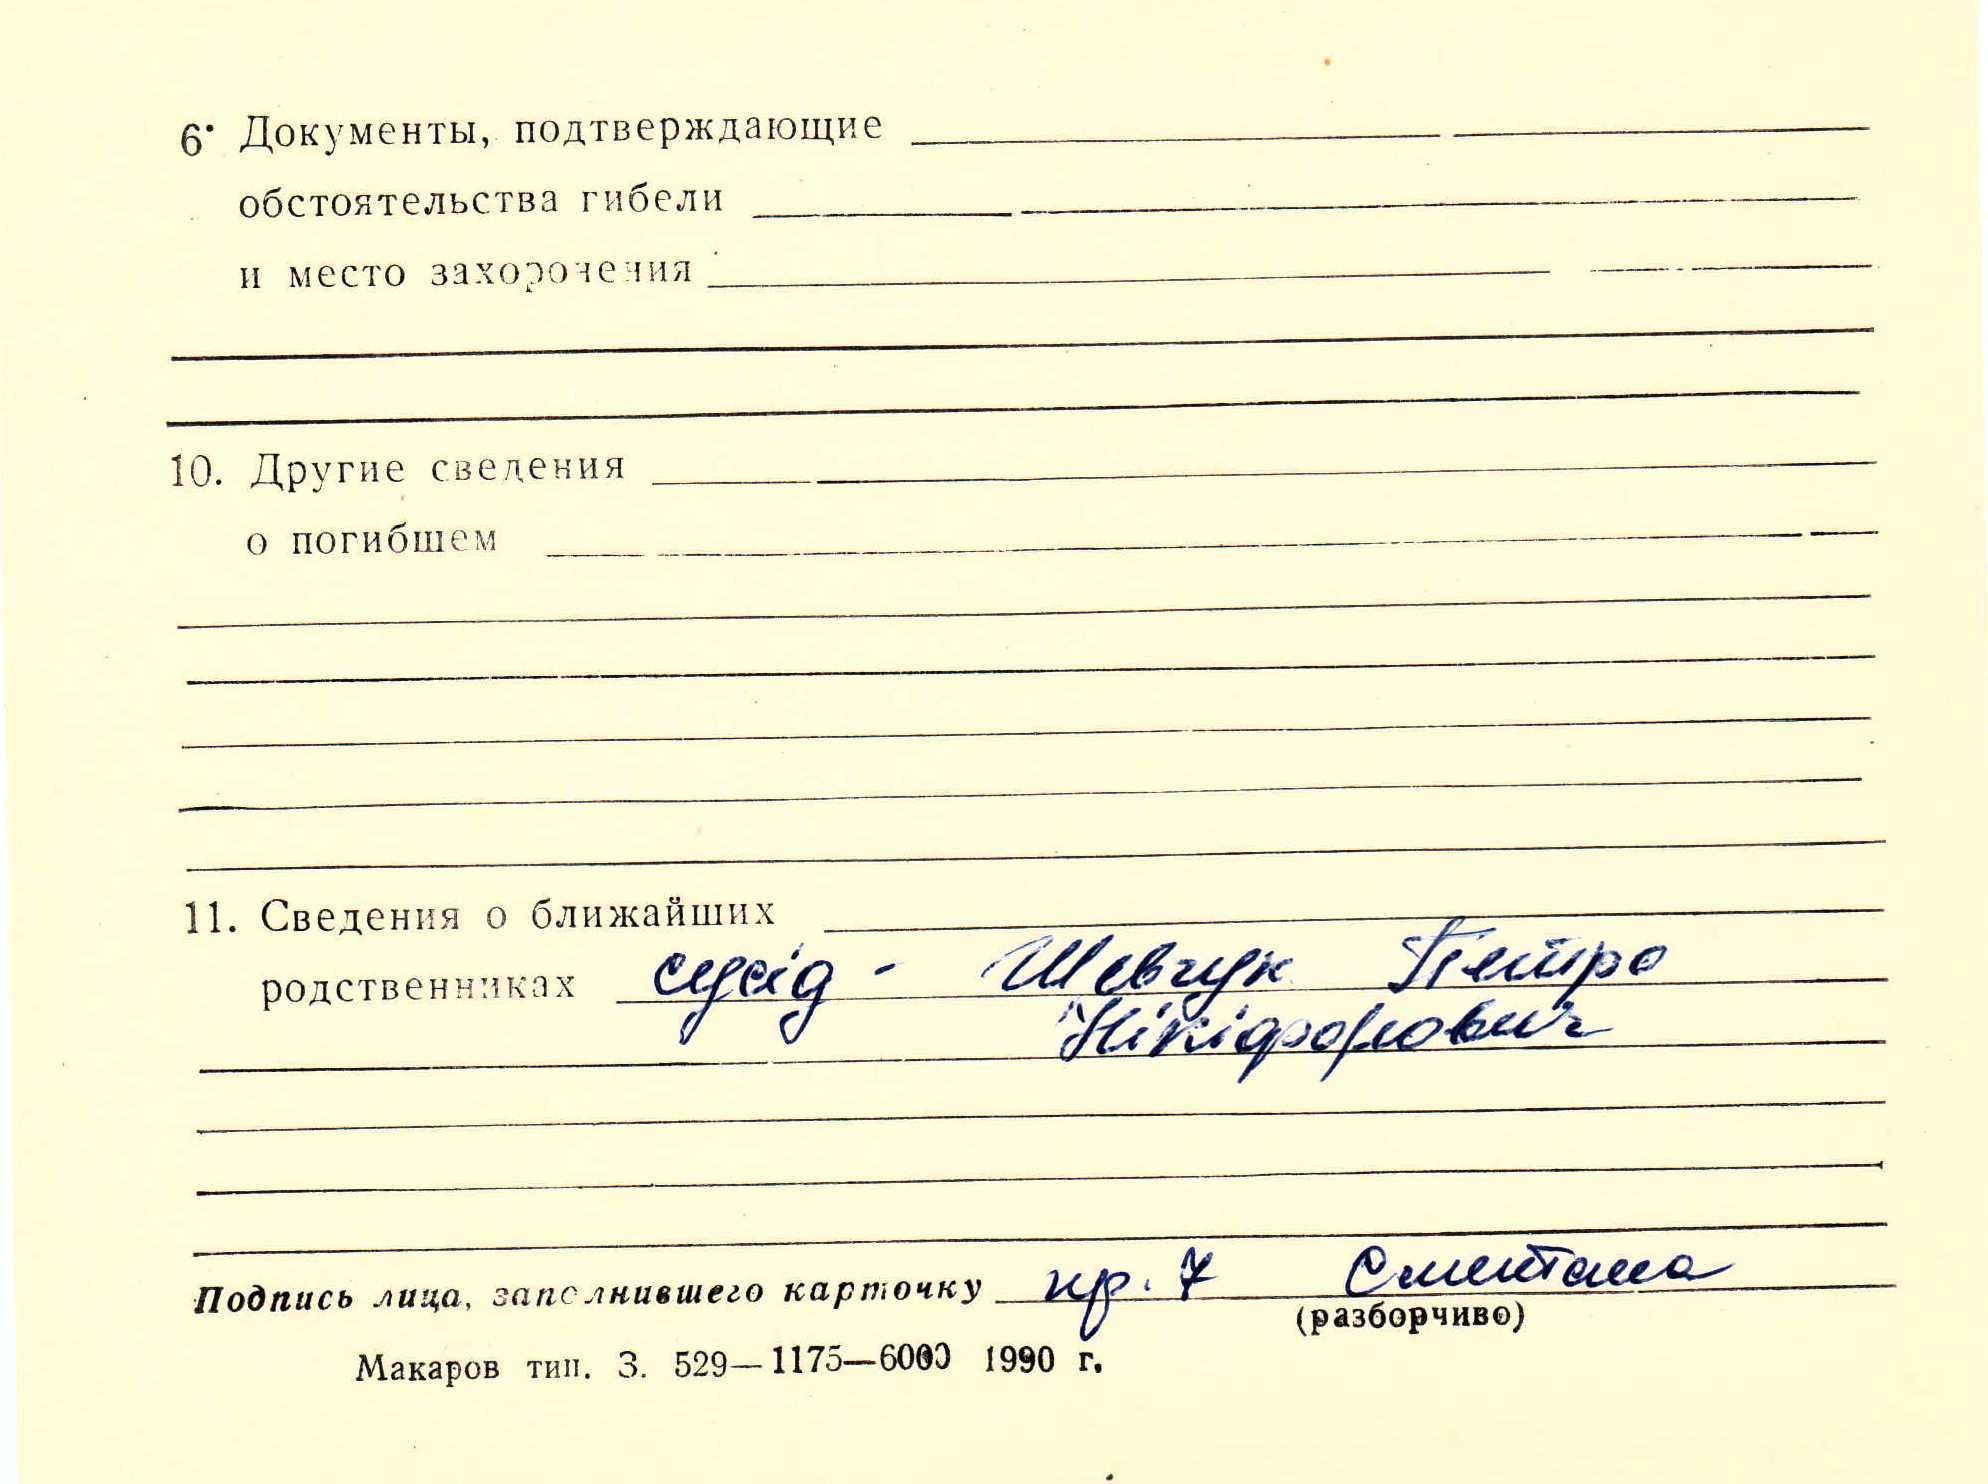 6. Документы, подтверждающие
обстоятельства гибели
и место захоронения
10. Другие сведения
о погибшем
11. Сведения о ближайших
родственниках сусід - Шевчук Петро
Нікіфорович
Подпись лица, заполнившего карточку пр. 7 Сметана
(разборчиво)
Макаров тип. З. 529—1175—6000 1990 г.